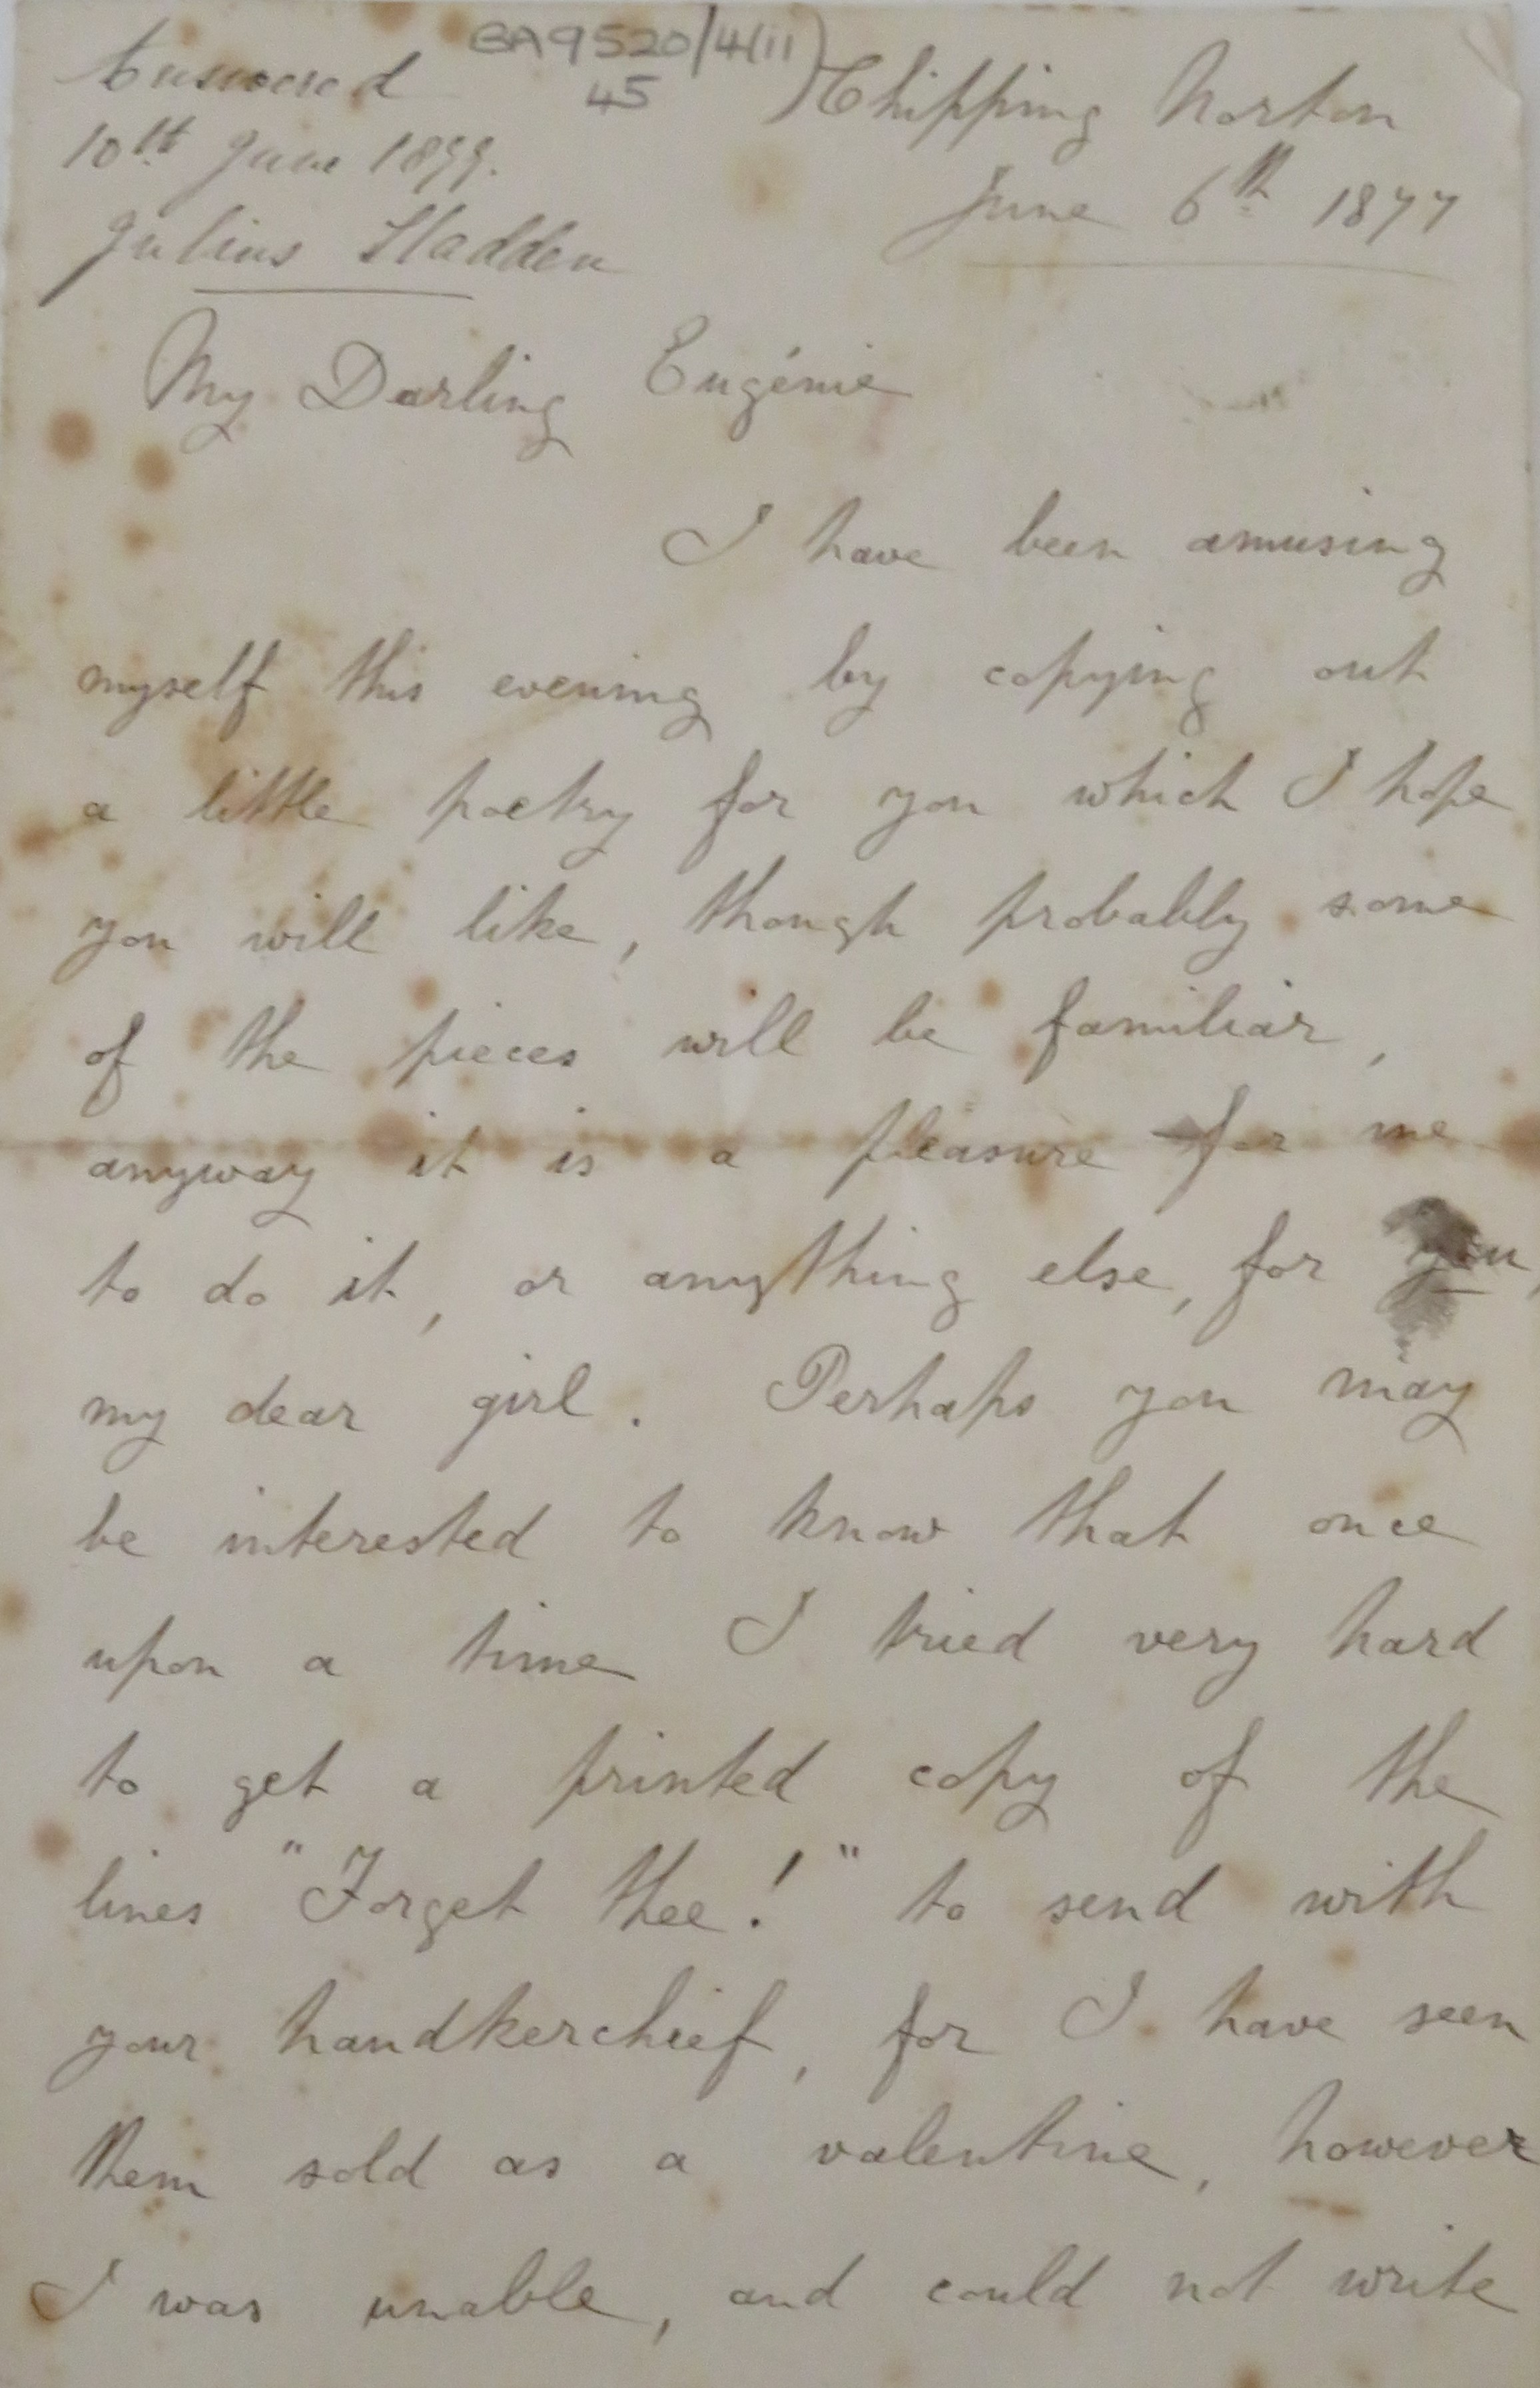 BA9520/4(ii)
45
Answered
10th June 1877.
Julius Sladden
Chipping Norton
June 6th 1877
My Darling Eugénie
I have been amusing
myself this evening by copying out
a little poetry for you which I hope
you will like, though probably some
of the pieces will be familiar,
anyway it is a pleasure for me
to do it, or anything else, for you,
my dear girl. Perhaps you may
be interested to know that once
upon a time I tried very hard
to get a printed copy of the
lines "Forget thee!" to send with
your handkerchief, for I have seen
them sold as a valentine, however
I was unable, and could not write